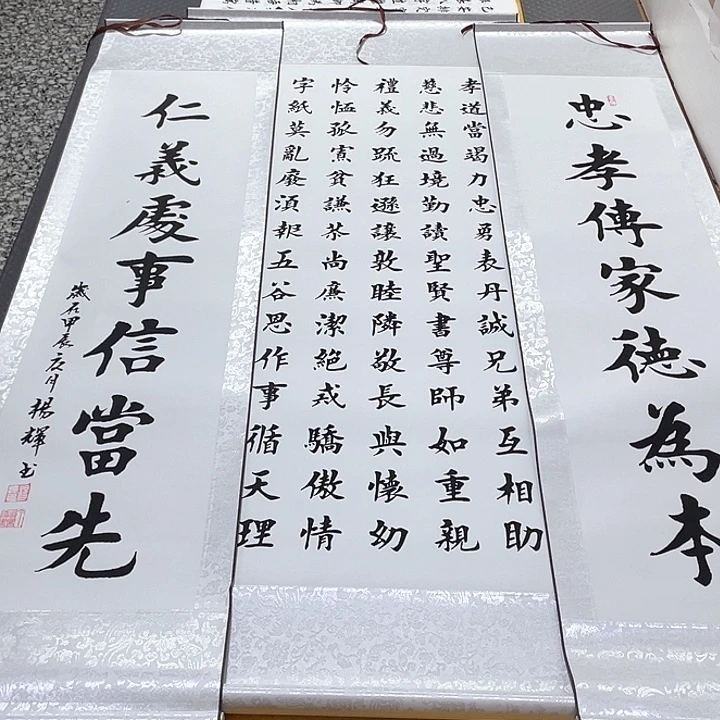 忠孝傳家德為本
孝道當竭力忠勇表丹誠兄弟互相助
慈悲無過境勤讀聖賢書尊師如重親
禮義勿疏狂遜讓敦睦隣敬長與懷幼
怜恤孤寡貧謙恭尚廉潔絕戒驕傲情
字紙莫亂廢須報五谷恩作事循天理
仁義處事信當先
歲在甲辰夏月楊輝书